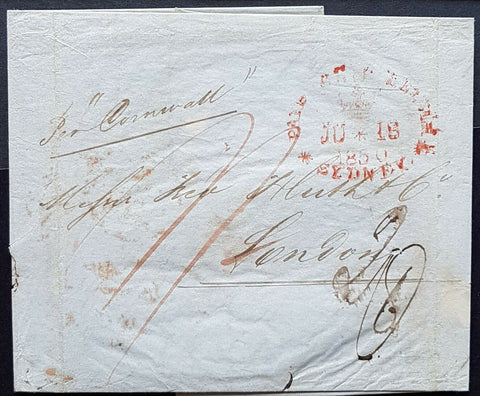 Per "Cornwall"
PAID SHIP LETTER
JU * 18
1850
* SYDNEY *
Messrs Fred Huth & Co.
London